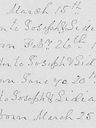 March 15th
to Joseph & Lidia
orn Feby 26th
nto Joseph & Lidi
orn June ye 20th
to Joseph & Lidia
orn March 25